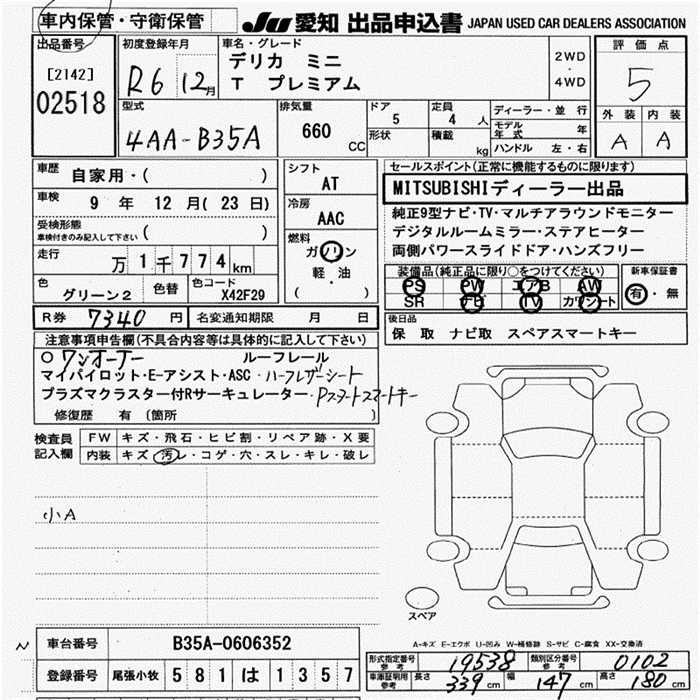 車内保管・守衛保管
JU 愛知 出品申込書 JAPAN USED CAR DEALERS ASSOCIATION
出品番号
[2142]
02518
初度登録年月
R6 12月
車名・グレード
デリカ ミニ
T プレミアム
2WD
・
4WD
評価点
5
外装 内装
A A
型式
4AA-B35A
排気量
660
CC
ドア
5
定員
4 人
形状
積載
kg
ディーラー・並行
モデル年式 年
ハンドル 左・右
車歴
自家用・( )
車検
9 年 12 月(23 日)
受検形態
車検付きのみ記入して下さい ( )
走行
万 1 千 774 km
色
グリーン2
色替
色コード
X42F29
シフト
AT
冷房
AAC
燃料
ガソリン
軽・油
( )
セールスポイント(正常に機能するものに限ります)
MITSUBISHIディーラー出品
純正9型ナビ・TV・マルチアラウンドモニター
デジタルルームミラー・ステアヒーター
両側パワースライドドア・ハンズフリー
装備品(純正品に限り○をつけてください)
PS PW エアB AW
SR ナビ TV カワシート
新車保証書
有・無
R券 7340 円 名変通知期限 月 日
後日品
保 取 ナビ取 スペアスマートキー
注意事項申告欄(不具合内容等は具体的に記入して下さい)
○ワンオーナー ルーフレール
マイパイロット・E-アシスト・ASC・ハーフレザーシート
プラズマクラスター付Rサーキュレーター・Pスタートスマートキー
修復歴 有 (箇所 )
検査員記入欄
FW キズ・飛石・ヒビ割・リペア跡・X要
内装 キズ・汚レ・コゲ・穴・スレ・キレ・破レ
小A
スペア
A-キズ E-エクボ U-凹み W-補修跡 S-サビ C-腐食 XX-交換済
N
車台番号 B35A-0606352
登録番号 尾張小牧 581 は 1357
形式指定番号 参考 19538 類別区分番号 参考 0102
車庫証明用 参考 長さ 339 cm 幅 147 cm 高さ 180 cm